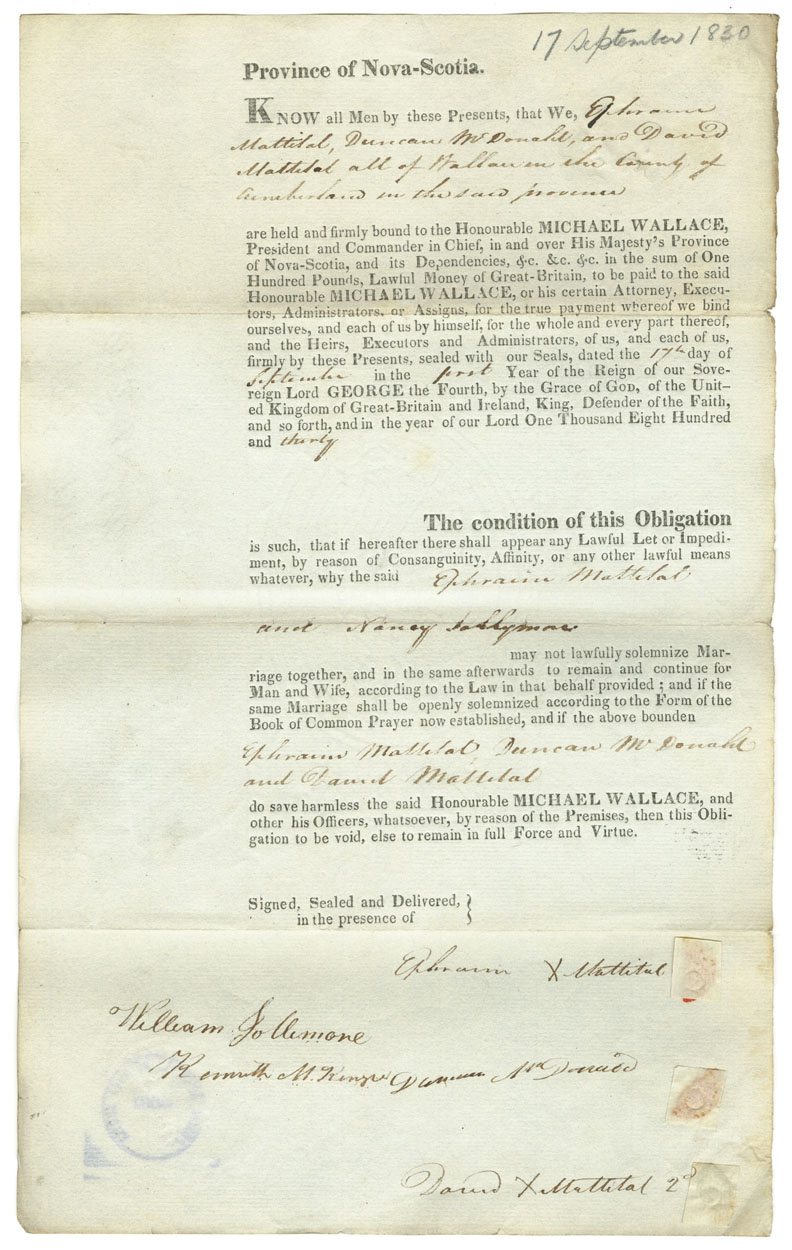 17 September 1830
Province of Nova-Scotia.
KNOW all Men by these Presents, that We, Ephraim
Mattital, Duncan McDonald, and David
Mattital all of Wallace in the County of
Cumberland in the said province
are held and firmly bound to the Honourable MICHAEL WALLACE,
President and Commander in Chief, in and over His Majesty's Province
of Nova-Scotia, and its Dependencies, &c. &c. &c. in the sum of One
Hundred Pounds, Lawful Money of Great-Britain, to be paid to the said
Honourable MICHAEL WALLACE, or his certain Attorney, Execu-
tors, Administrators, or Assigns, for the true payment whereof we bind
ourselves, and each of us by himself, for the whole and every part thereof,
and the Heirs, Executors and Administrators, of us, and each of us,
firmly by these Presents, sealed with our Seals, dated the 17th day of
September in the first Year of the Reign of our Sove-
reign Lord GEORGE the Fourth, by the Grace of GOD, of the Unit-
ed Kingdom of Great-Britain and Ireland, King, Defender of the Faith,
and so forth, and in the year of our Lord One Thousand Eight Hundred
and thirty
The condition of this Obligation
is such, that if hereafter there shall appear any Lawful Let or Impedi-
ment, by reason of Consanguinity, Affinity, or any other lawful means
whatever, why the said Ephraim Mattital
and Nancy Jollymore
may not lawfully solemnize Mar-
riage together, and in the same afterwards to remain and continue for
Man and Wife, according to the Law in that behalf provided; and if the
same Marriage shall be openly solemnized according to the Form of the
Book of Common Prayer now established, and if the above bounden
Ephraim Mattital, Duncan McDonald
and David Mattital
do save harmless the said Honourable MICHAEL WALLACE, and
other his Officers, whatsoever, by reason of the Premises, then this Obli-
gation to be void, else to remain in full Force and Virtue.
Signed, Sealed and Delivered, }
in the presence of
Ephraim X Mattital
William Jollemore
Kenneth McKenzie Duncan McDonald
David X Mattital 2d